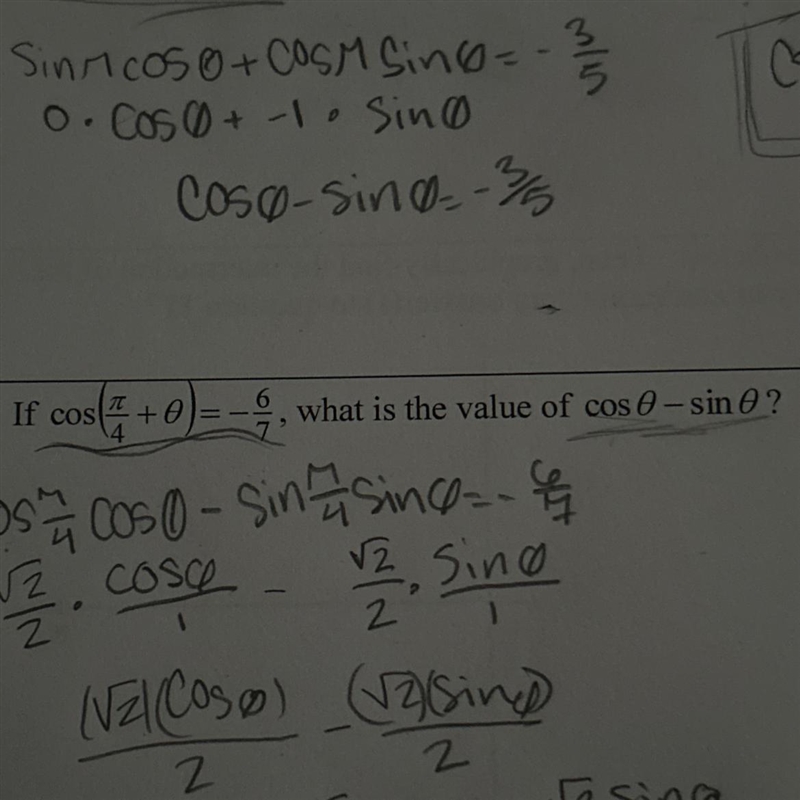 sin π cos θ + cos π sin θ = - 3/5
0 · cos θ + -1 · sin θ
cos θ - sin θ = - 3/5
If cos(π/4 + θ) = - 6/7, what is the value of cos θ - sin θ?
os π/4 cos θ - sin π/4 sin θ = - 6/7
√2/2 · cos θ/1 - √2/2 · sin θ/1
(√2)(cos θ)/2 - (√2)(sin θ)/2
sin θ